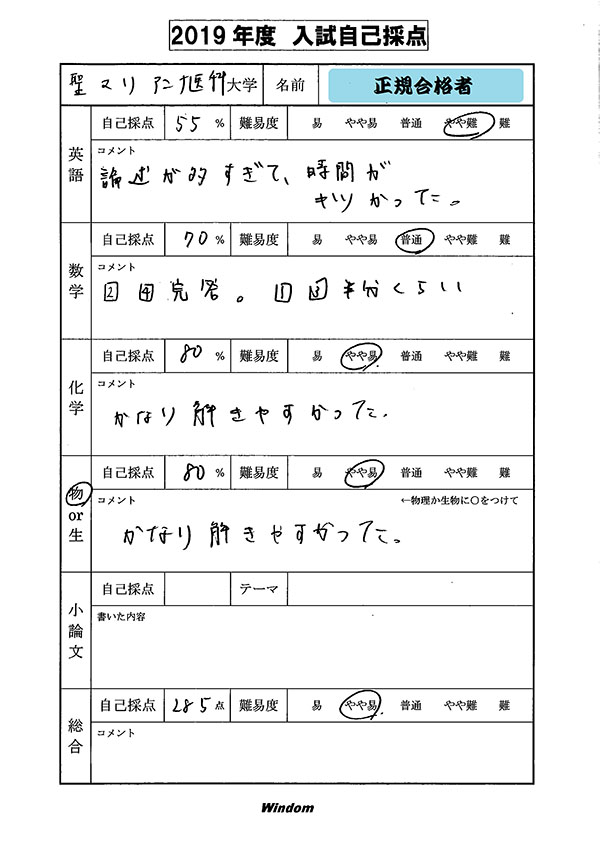 2019年度 入試自己採点
聖マリアンナ医科大学 名前 正規合格者
英語
自己採点 55% 難易度 易 やや易 普通 やや難 難
コメント
論述が的すぎて、時間が
キツかってた。
数学
自己採点 70% 難易度 易 やや易 普通 やや難 難
コメント
2 4 完答。 1 3 半分くらい
化学
自己採点 80% 難易度 易 やや易 普通 やや難 難
コメント
かなり解きやすかった.
物or生
自己採点 80% 難易度 易 やや易 普通 やや難 難
コメント ←物理か生物に〇をつけて
かなり解きやすかった。
小論文
自己採点 テーマ
書いた内容
総合
自己採点 285点 難易度 易 やや易 普通 やや難 難
コメント
Windom